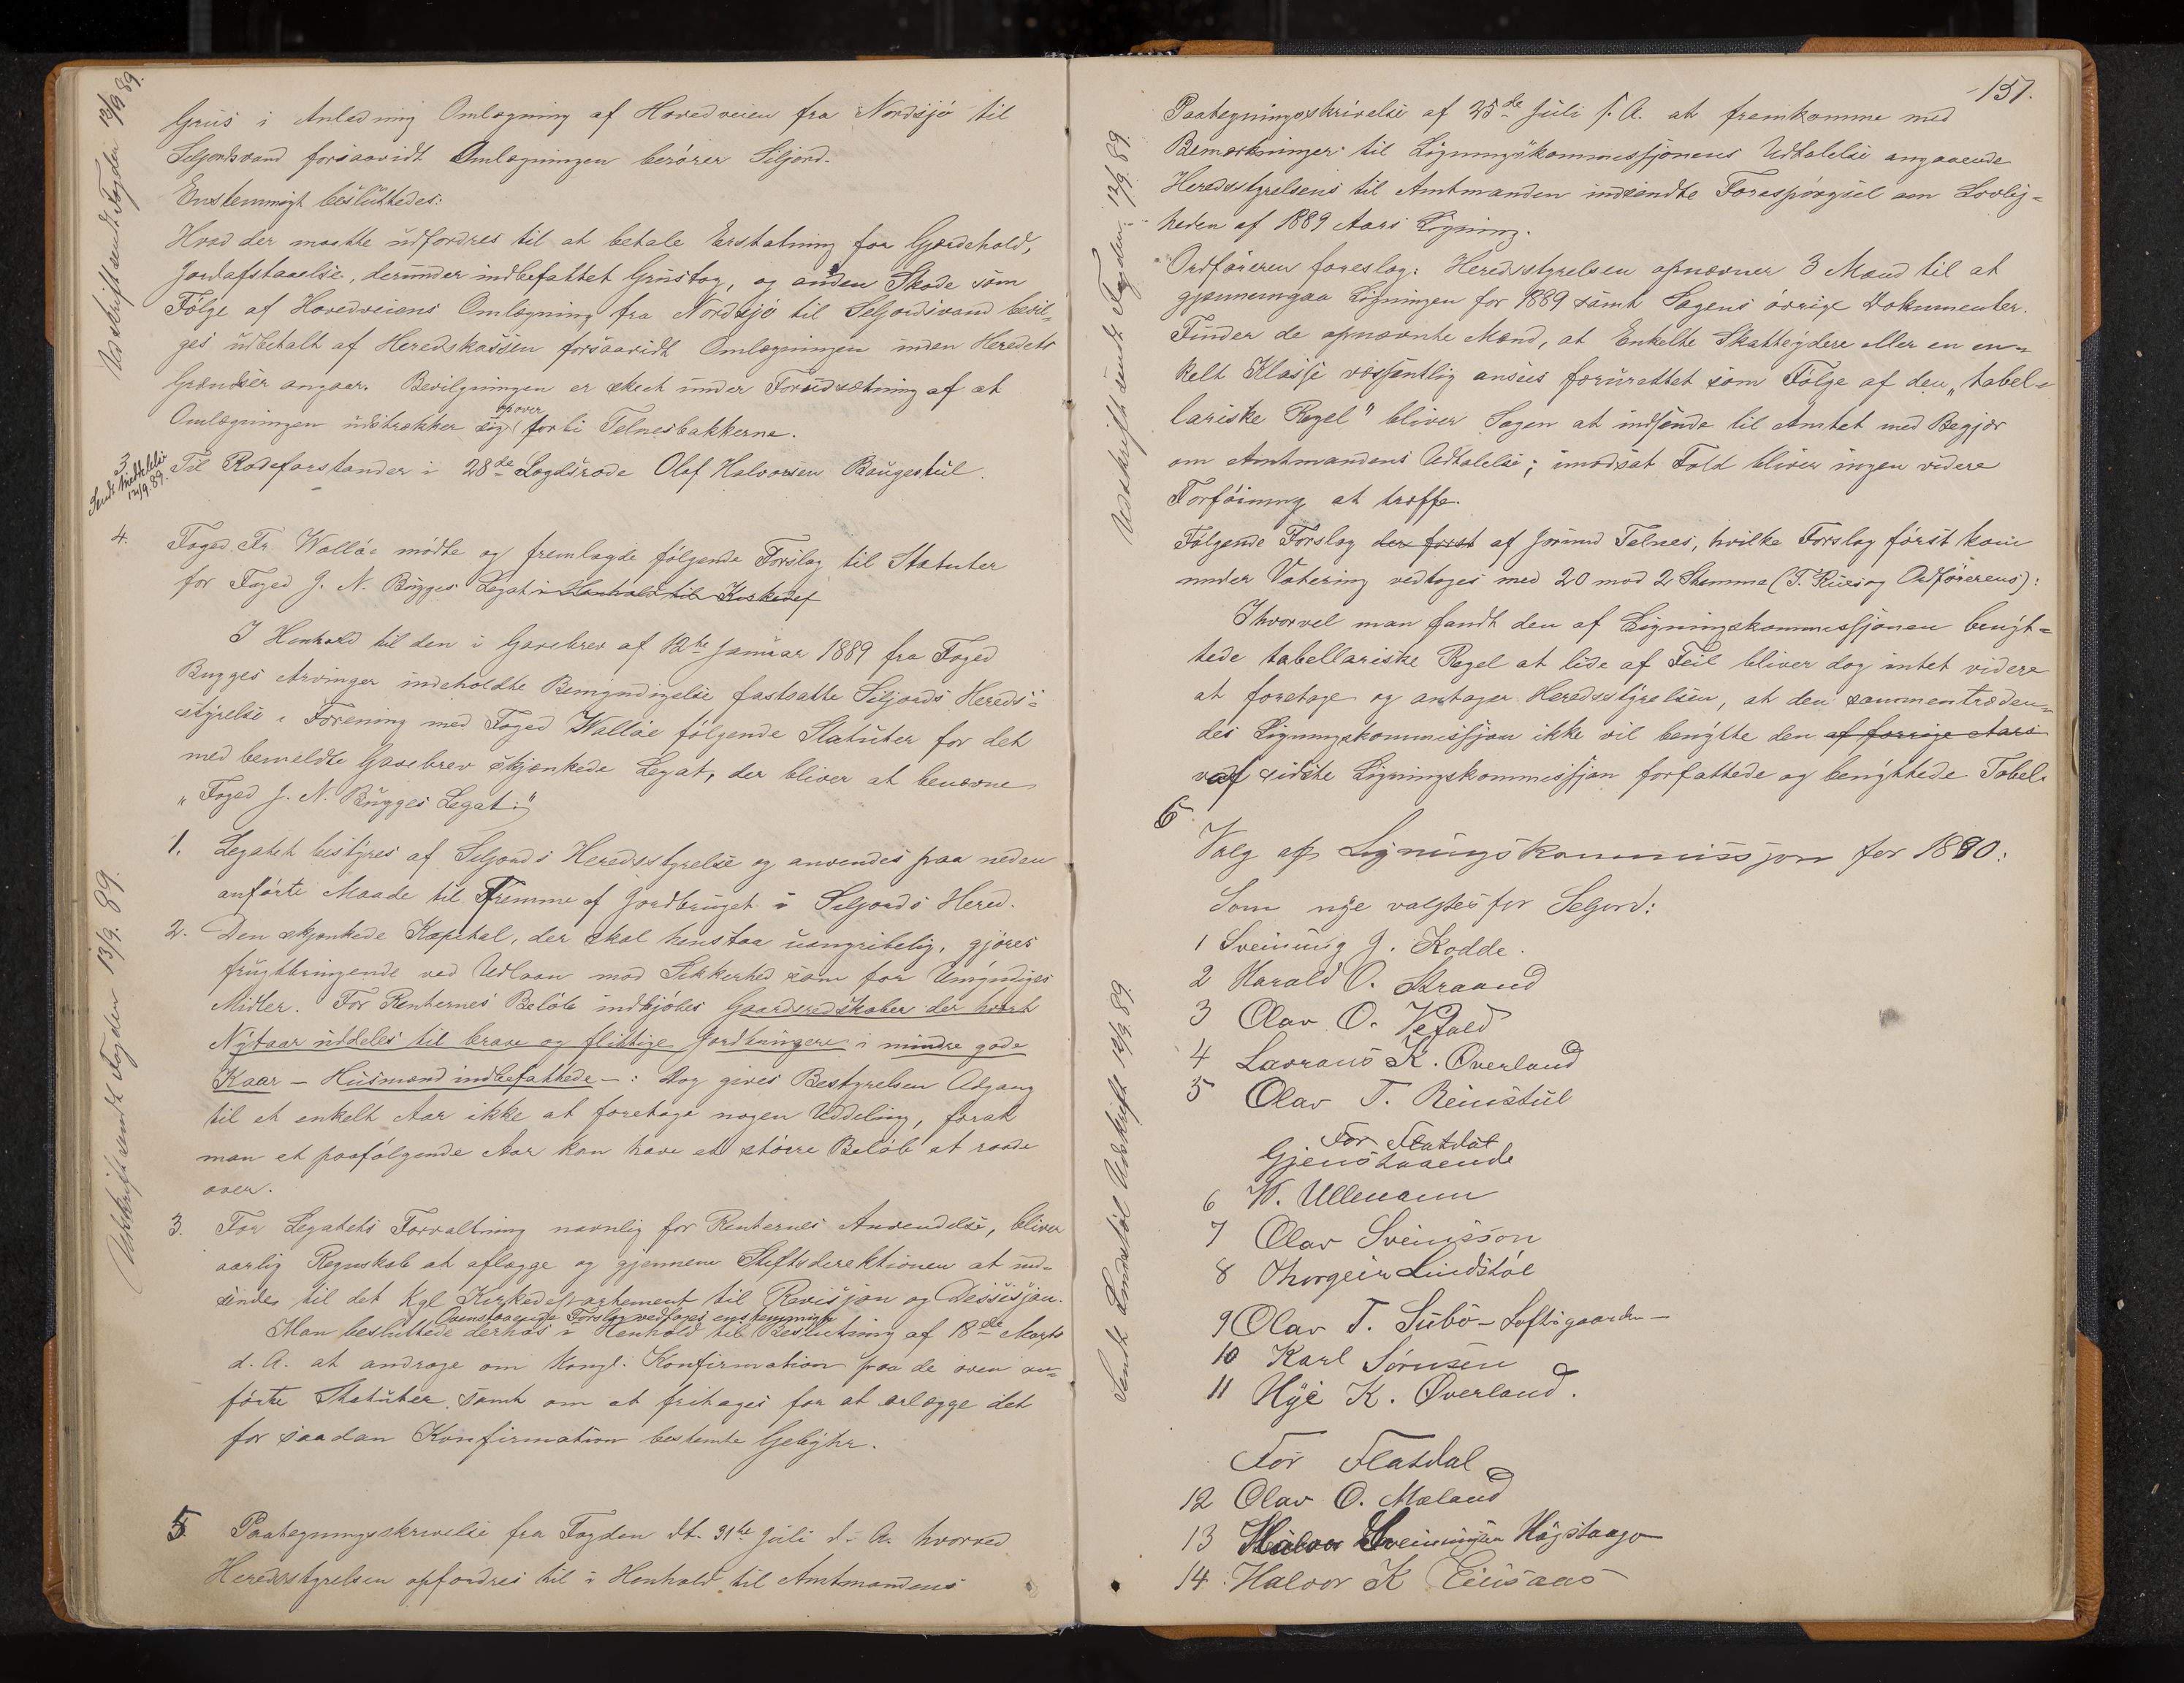 Udskrift sendt Fogden 12/9 89.
Grus i Anledning Omlægning af Hovedveien fra Nordsjö til
Seljordsvand forsaavidt Omlægningen berörer Siljord.
Enstemmigt besluttedes:
Hvad der maatte udfordres til at betale Erstatning for Gjærdehold,
Jordafstaaelse, derunder indbefattet Grustag, og anden Skade som
Fölge af Hovedveiens Omlægning fra Nordsjö til Seljordsvand bevil-
ges udbetalt af Heredskassen forsaavidt Omlægningen inden Heredets
Grændser angaar. Bevilgningen er skeet under Forudsætning af at
Omlægningen udstrækker sig opover forbi Telnesbakkerne.
3
Sendt Meddelelse
12/9.89.
Til Rodeforstander i 28de Lægdsrode Olaf Halvorsen Baugestul.
4.
Foged Fr. Walløe mödte og fremlagde fölgende Forslag til Statuter
for Foged J. N. Bugges Legat i Henhold til Kirkedep
I Henhold til den i Gavebrev af 12te Januar 1889 fra Foged
Bugges Arvinger indeholdte Bemyndigelse fastsatte Siljords Hereds-
styrelse i Forening med Foged Wallöe fölgende Statuter for det
med bemeldte Gavebrev skjænkede Legat, der bliver at benævne
„Foged J. N. Bugges Legat:"
1. Legatet bestyres af Seljords Heredsstyrelse og anvendes paa neden
anförte Maade til Fremme af Jordbruget i Seljords Hered.
2. Den skjænkede Kapital, der skal henstaa uangribelig, gjöres
frugtbringende ved Udlaan mod Sikkerhed som for Umyndiges
Midler. For Renternes Belöb indkjöbes Gaardsredskaber der hvert
Nytaar uddeles til brave og flittige Jordbrugere i mindre gode
Kaar – Husmænd indbefattede –: Dog gives Bestyrelsen Adgang
til et enkelt Aar ikke at foretage nogen Uddeling, forat
man et paafölgende Aar kan have et större Belöb at raade
over.
3. For Legatets Forvaltning navnlig for Renternes Anvendelse, bliver
aarlig Regnskab at aflægge og gjennem Stiftsdirektionen at ind-
sendes til det Kgl Kirkedepartement til Revisjon og Dessisjon.
Ovenstaaende Forslag vedtages enstemmigt
Man besluttede derhos i Henhold til Beslutning af 18de Marts
d. A. at andrage om kongl. Konfirmation paa de oven an-
förte Statuter samt om at fritages for at erlægge det
for saadan Konfirmation bestemte Gebyhr.
Udskrift sendt Fogden 13/9. 89.
5 Paategningsskrivelse fra Fogden dt. 31te Juli d. A. hvorved
Heredsstyrelsen opfordres til i Henhold til Amtmandens
157.
Udskrift sendt Fogden 12/9. 89.
Paategningsskrivelse af 25de Juli s. A. at fremkomme med
Bemærkninger til Ligningskommissjonens Udtalelse angaaende
Heredsstyrelsens til Amtmanden indsendte Forespörgsel om Lovlig-
heden af 1889 Aars Ligning.
Ordföreren foreslog: Heredsstyrelsen opnævner 3 Mænd til at
gjennemgaa Ligningen for 1889 samt Sagens övrige Dokumenter.
Finder de opnævnte Mænd, at Enkelte Skatteydere eller en en-
kelt Klasse væssentlig ansees forurettet som Fölge af den „tabel-
lariske Regel" bliver Sagen at indsende til Amtet med Begjær
om Amtmandens Udtalelse; imodsat Fald bliver ingen videre
Forföining at træffe.
Fölgende Forslag der först af Jörund Telnes, hvilke Forslag först kom
under Votering vedtoges med 20 mod 2 Stemme (T. Rues og Ordförerens):
Ihvorvel man fandt den af Ligningskommissjonen benyt-
tede tabellariske Regel at lide af Feil bliver dog intet videre
at foretage og antager Heredsstyrelsen, at den sammentræden-
des Ligningskommissjon ikke vil benytte den af forrige Aars
af sidste Ligningskommissjon forfattede og benyttede Tabel.
6.
Valg af Ligningskommissjon for 1890:
Som nye valgtes for Seljord:
1 Sveinung J. Kodde.
2 Harald O. Straand
3 Olav O. Vefald
4 Lavrans K. Överland
5 Olav T. Reinstul
For Flatdal
Gjenstaaende
6 V. Ullmann
7 Olav Sveinsson
8 Thorgeir Lindstöl
9 Olav T. Subö – Loftsgaarden –
10 Karl Sörnsen
11 Hye K. Överland.
For Flatdal
12 Olav O. Mæland
13 Halvor Sveinungsen Högstaage
14. Halvor K
Sendt Lindstöl Udskrift 12/9 89.